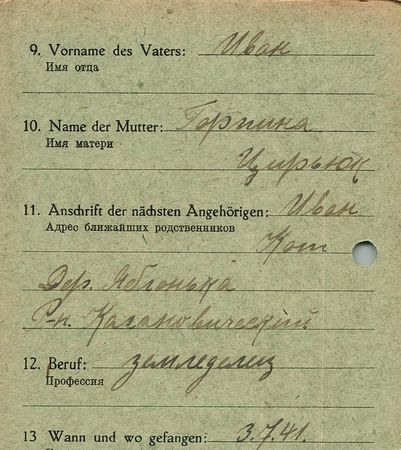 9. Vorname des Vaters: Иван
Имя отца
10. Name der Mutter: Горпина
Имя матери
Цирьюк
11. Anschrift der nächsten Angehörigen: Иван
Адрес ближайших родственников
Кот
Дер. Яблонька
Р-н. Кагановический
12. Beruf: земледелец
Профессия
13 Wann und wo gefangen: 3.7.41.